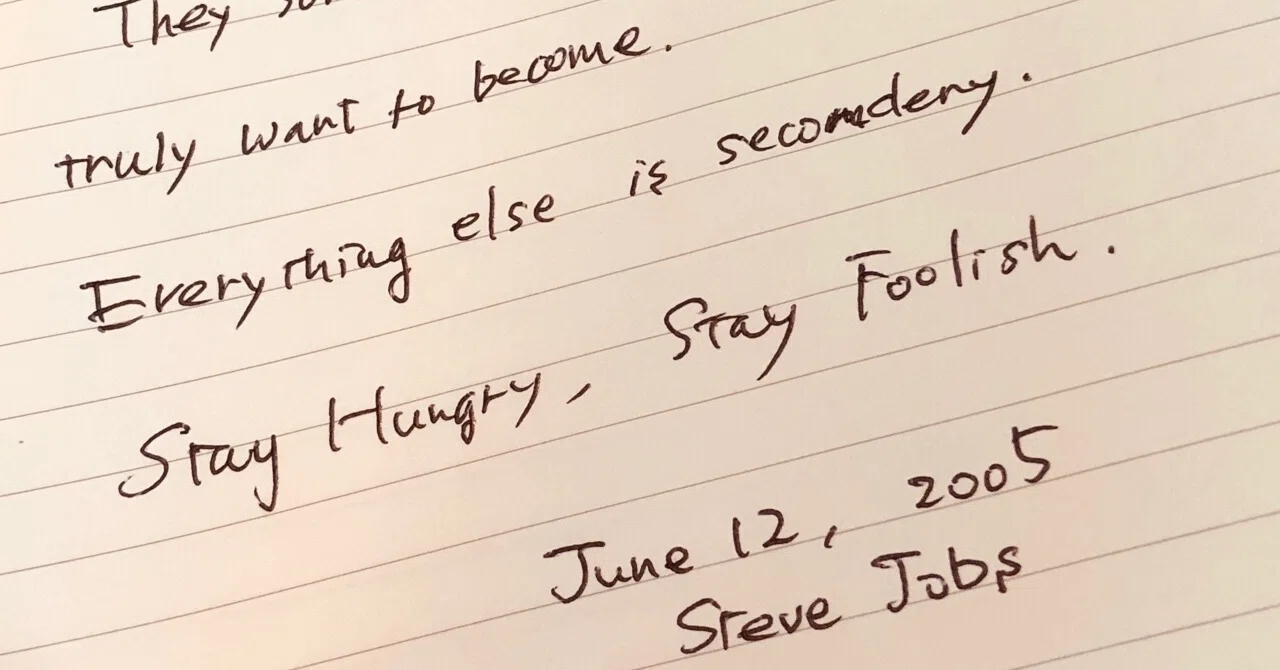 They
truly want to become.
Everything else is secomdery.
Stay Hungry, Stay Foolish.
June 12, 2005
Steve Jobs